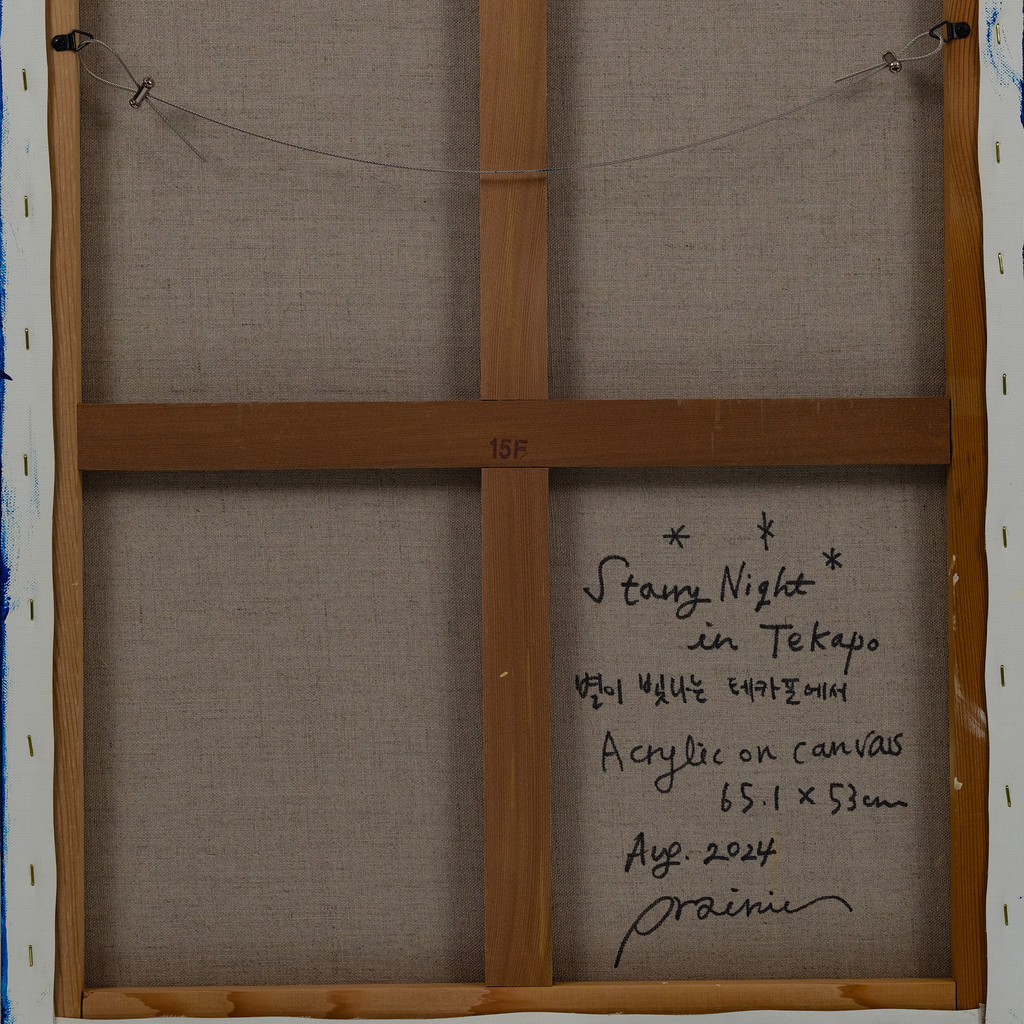 15F
Starry Night
in Tekapo
별이 빛나는 테카포에서
Acrylic on canvas
65.1 × 53cm
Aug. 2024
prairie